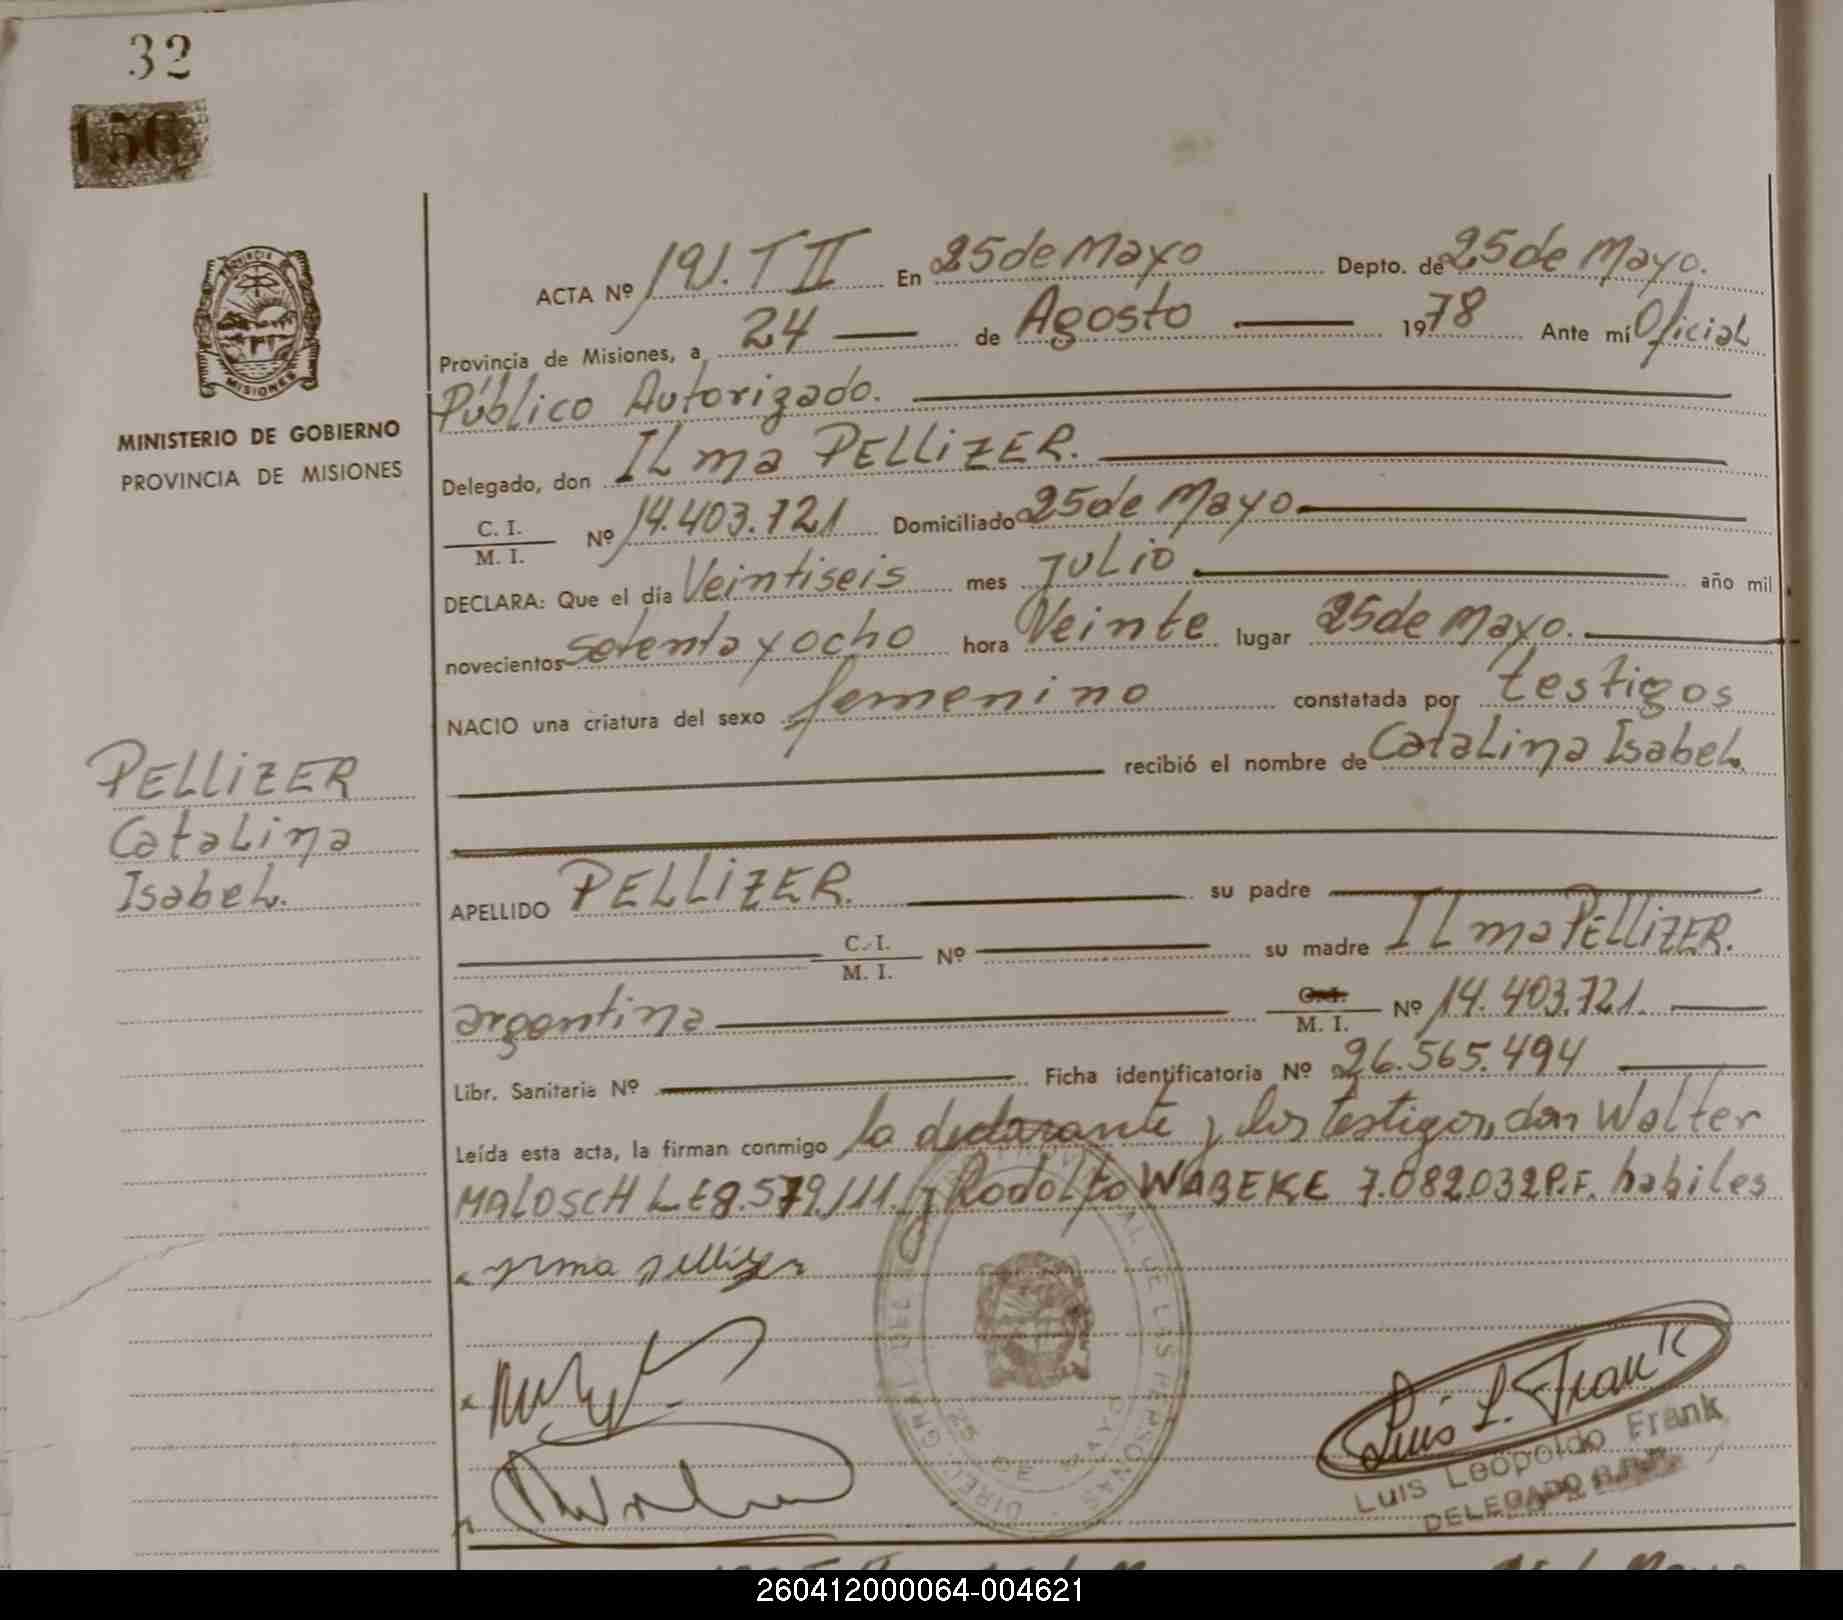 32
156
MINISTERIO DE GOBIERNO
PROVINCIA DE MISIONES
PELLIZER
Catalina
Isabel.
ACTA Nº 191. T II En 25 de Mayo Depto. de 25 de Mayo.
Provincia de Misiones, a 24 de Agosto 1978 Ante mí Oficial
Público Autorizado.
Delegado, don ILma PELLIZER.
C. I.
M. I. Nº 14.403.721 Domiciliado 25 de Mayo
DECLARA: Que el día Veintiseis mes Julio año mil
novecientos setenta y ocho hora Veinte lugar 25 de Mayo.
NACIO una criatura del sexo femenino constatada por testigos
recibió el nombre de Catalina Isabel.
APELLIDO PELLIZER. su padre
C. I.
M. I. Nº su madre ILma PELLIZER.
argentina C. I.
M. I. Nº 14.403.721.
Libr. Sanitaria Nº Ficha identificatoria Nº 26.565.494
Leída esta acta, la firman conmigo la declarante y los testigos, don Walter
MALOSCH L.E 8.579.111. y Rodolfo WABEKE 7.082.032 P.F. habiles
Luis L. Frank
Luis Leopoldo Frank
DELEGADO
25 DE MAYO
260412000064-004621